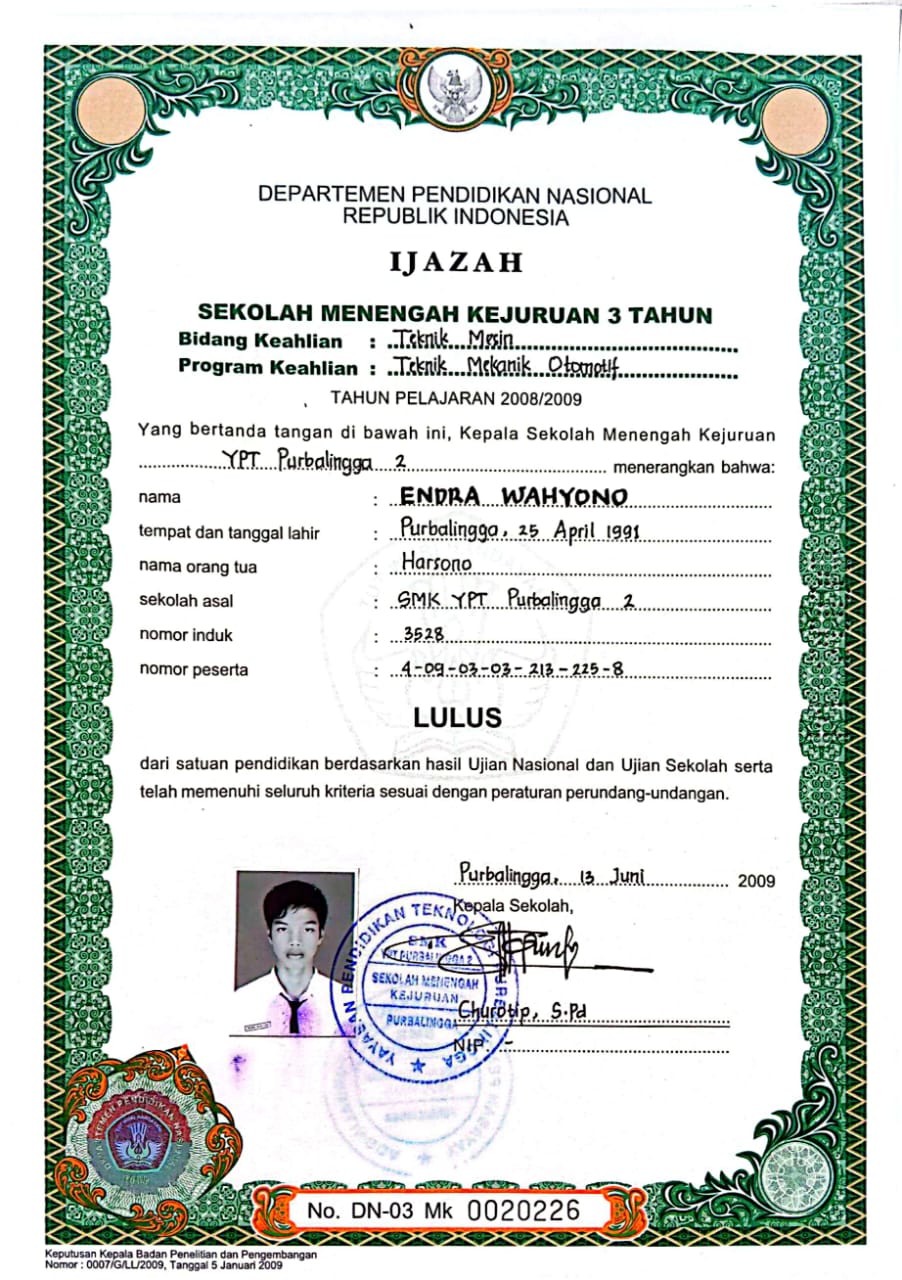 DEPARTEMEN PENDIDIKAN NASIONAL
REPUBLIK INDONESIA
IJAZAH
SEKOLAH MENENGAH KEJURUAN 3 TAHUN
Bidang Keahlian : Teknik Mesin
Program Keahlian : Teknik Mekanik Otomotif
TAHUN PELAJARAN 2008/2009
Yang bertanda tangan di bawah ini, Kepala Sekolah Menengah Kejuruan
YPT Purbalingga 2 menerangkan bahwa:
nama : ENDRA WAHYONO
tempat dan tanggal lahir : Purbalingga, 25 April 1991
nama orang tua : Harsono
sekolah asal : SMK YPT Purbalingga 2
nomor induk : 3528
nomor peserta : 4-09-03-03-213-225-8
LULUS
dari satuan pendidikan berdasarkan hasil Ujian Nasional dan Ujian Sekolah serta
telah memenuhi seluruh kriteria sesuai dengan peraturan perundang-undangan.
Purbalingga, 13 Juni 2009
Kepala Sekolah,
YAYASAN PENDIDIKAN TEKNOLOGI
SMK
YPT PURBALINGGA 2
SEKOLAH MENENGAH
KEJURUAN
PURBALINGGA
Churotip, S.Pd
NIP. -
No. DN-03 Mk 0020226
Keputusan Kepala Badan Penelitian dan Pengembangan
Nomor : 0007/G/LL/2009, Tanggal 5 Januari 2009